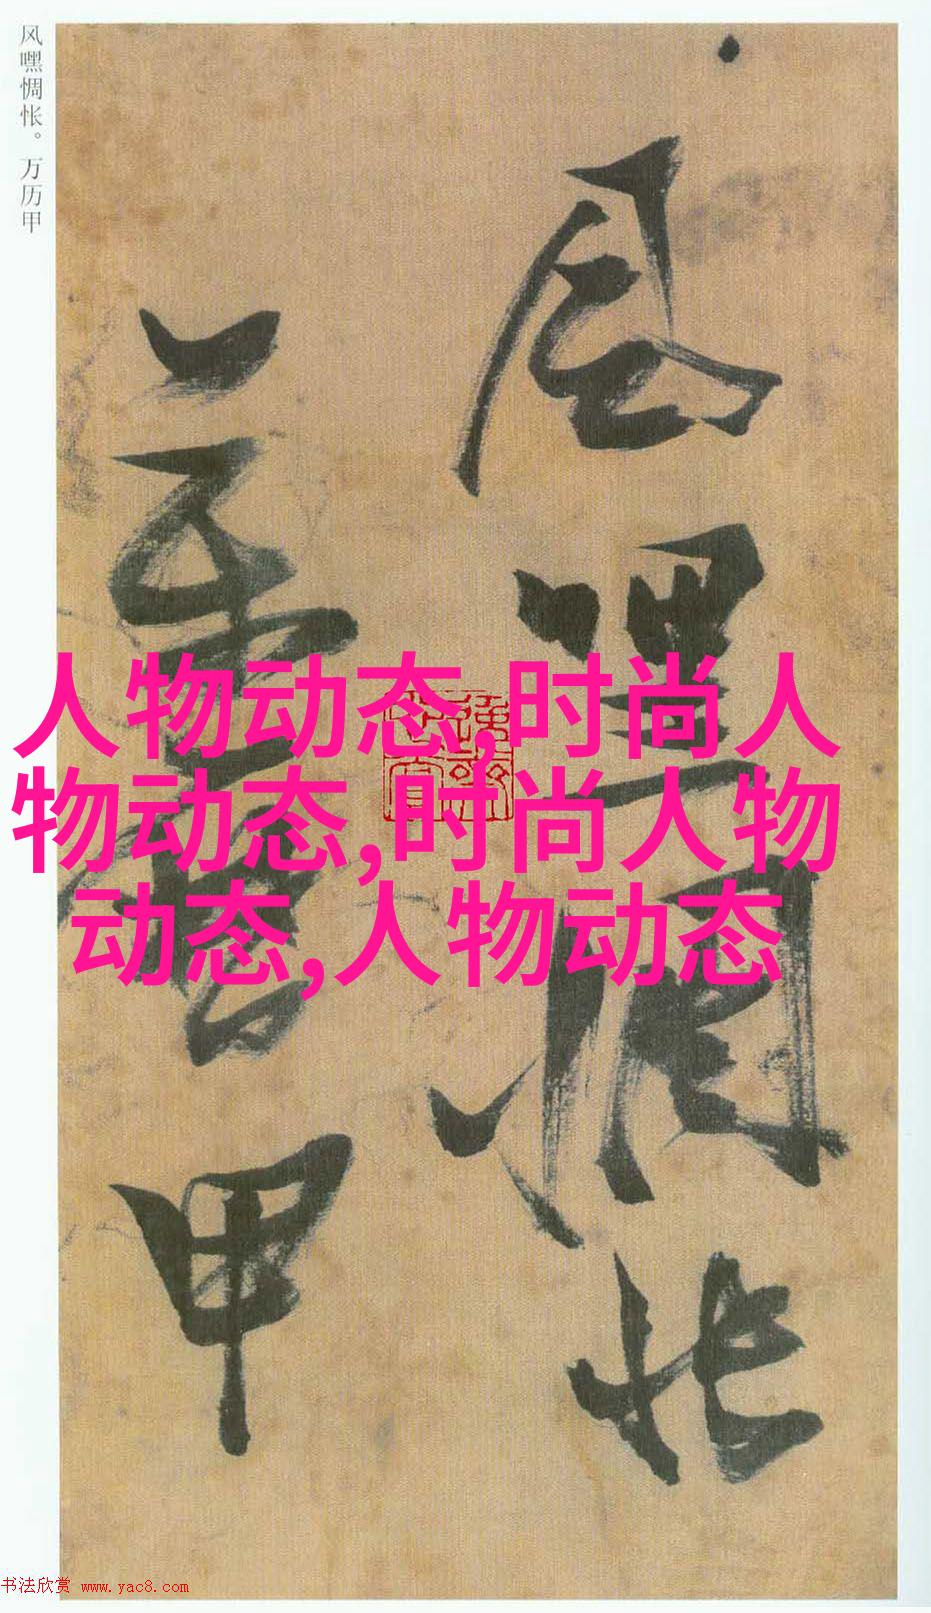 风嘿惆怅。万历甲
風嘿惆悵
一
萬曆甲
人物动态,时尚人
物动态,时尚人物
动态,人物动态
书法欣赏 www.yac8.com